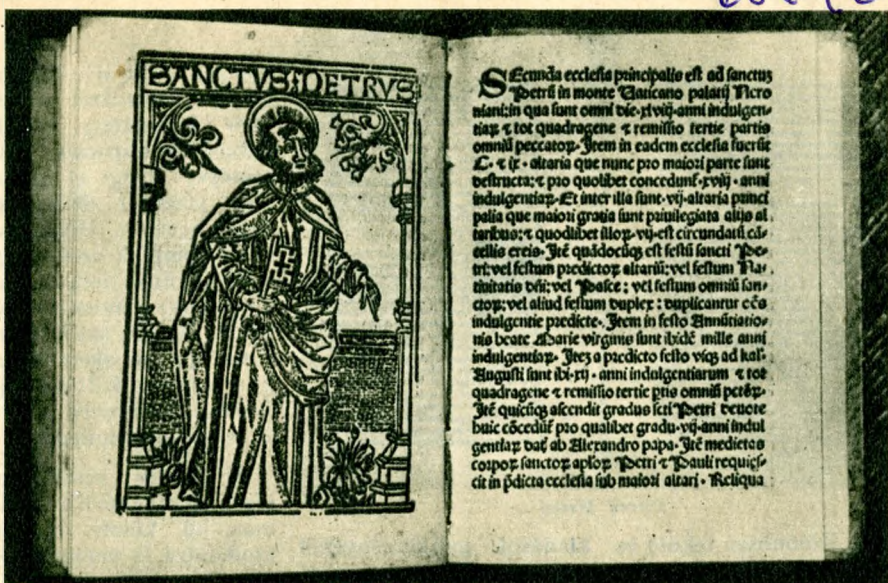 SANCTVS PETRVS
SEcunda ecclesia principalis est ad sanctuȝ
Petrū in monte Vaticano palatij Nero
niani: in qua sunt omni die · xlviij · anni indulgen-
tiaꝝ ⁊ tot quadragene ⁊ remissio tertie partis
omniū peccatoꝝ · Item in eadem ecclesia fuerūt
C · ⁊ ix · altaria que nunc pro maiori parte sunt
destructa: ⁊ pro quolibet concedunt̄ · xviij · anni
indulgentiaꝝ · Et inter illa sunt · vij · altaria princi
palia que maiori gratia sunt priuilegiata alijs al
taribus: ⁊ quodlibet illoꝝ · vij · est circundatū cā-
cellis ereis · Itē quādocūqꝫ est festū sancti Pe-
tri: vel festum predictoꝝ altariū: vel festum Na-
tiuitatis dn̄i: vel Pasce: vel festum omniū san-
ctoꝝ: vel aliud festum duplex: duplicantur
indulgentie predicte · Item in festo Annūtiatio-
nis beate Marie virginis sunt ibidē mille anni
indulgentiaꝝ · Iteȝ a predicto festo vsqꝫ ad kal'
Augusti sunt ibi · xij · anni indulgentiarum ⁊ tot
quadragene ⁊ remissio tertie ptis omniū
Itē quicūqꝫ ascendit gradus scti Petri deuote
huic cōcedūt̄ pro qualibet gradu · vij · anni indul
gentiaꝝ dat̄ ab Alexandro papa · Itē medietas
corpoꝝ sanctoꝝ aplo̅ꝝ Petri ⁊ Pauli requies-
cit in p̄dicta ecclesia sub maiori altari · Reliqua